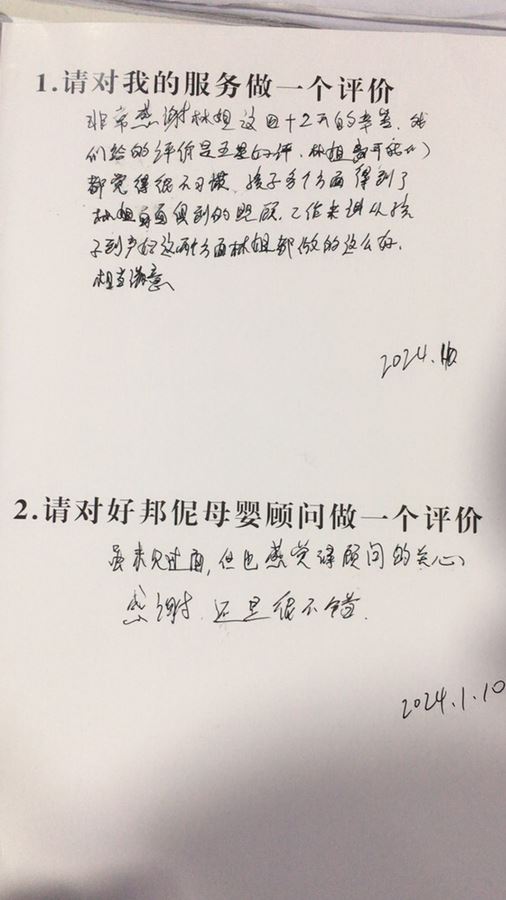 1.请对我的服务做一个评价
非常感谢林姐这四十二天的辛劳,我
们给的评价是五星好评,林姐离开我们
都觉得很不习惯,孩子各个方面得到了
林姐面俱到的照顾,工作来讲从孩
子到产妇这两个方面林姐都做的这么好,
相当满意
2024.
2.请对好邦伲母婴顾问做一个评价
虽未见过面,但也感觉得顾问的关心,
感谢,还是很不错.
2024.1.10